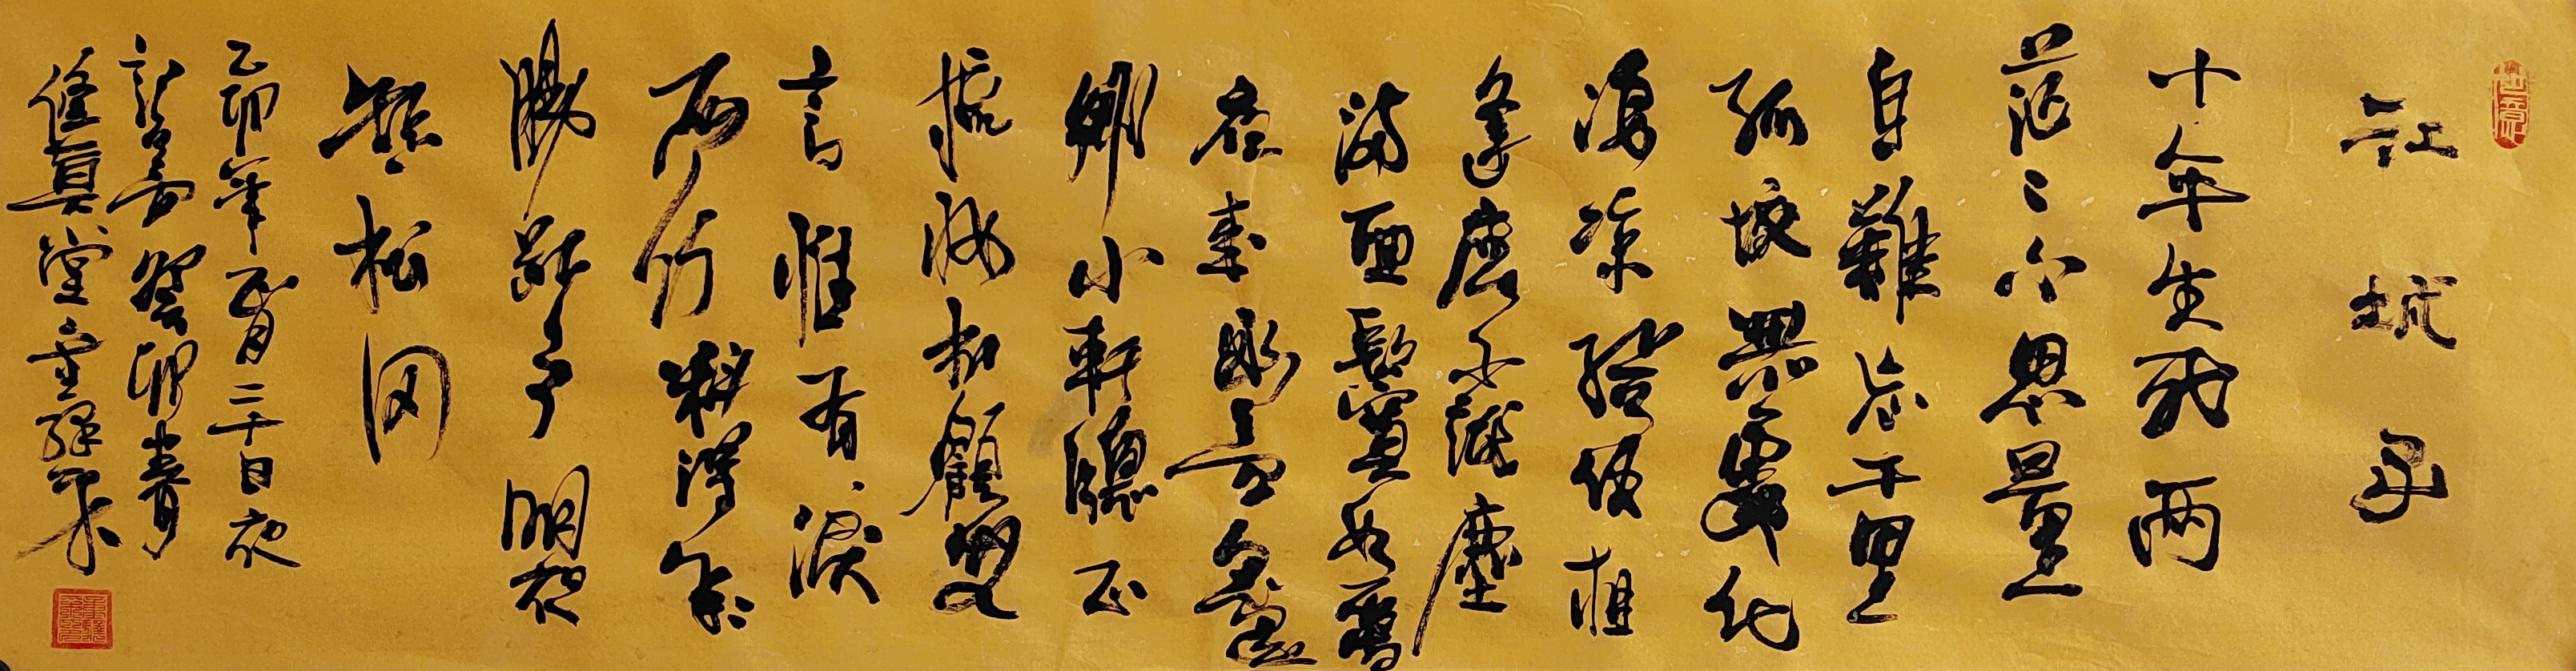 江城子
十年生死两
茫々不思量
自難忘千里
孤墳無處話
淒凉縱使相
逢應不識塵
滿面鬢如霜
夜來幽夢忽還
鄉小軒牕正
梳妝相顧無
言惟有淚
行料得年々
腸斷處明夜
短松冈
乙卯年正月二十日夜
記夢癸卯春
真堂主